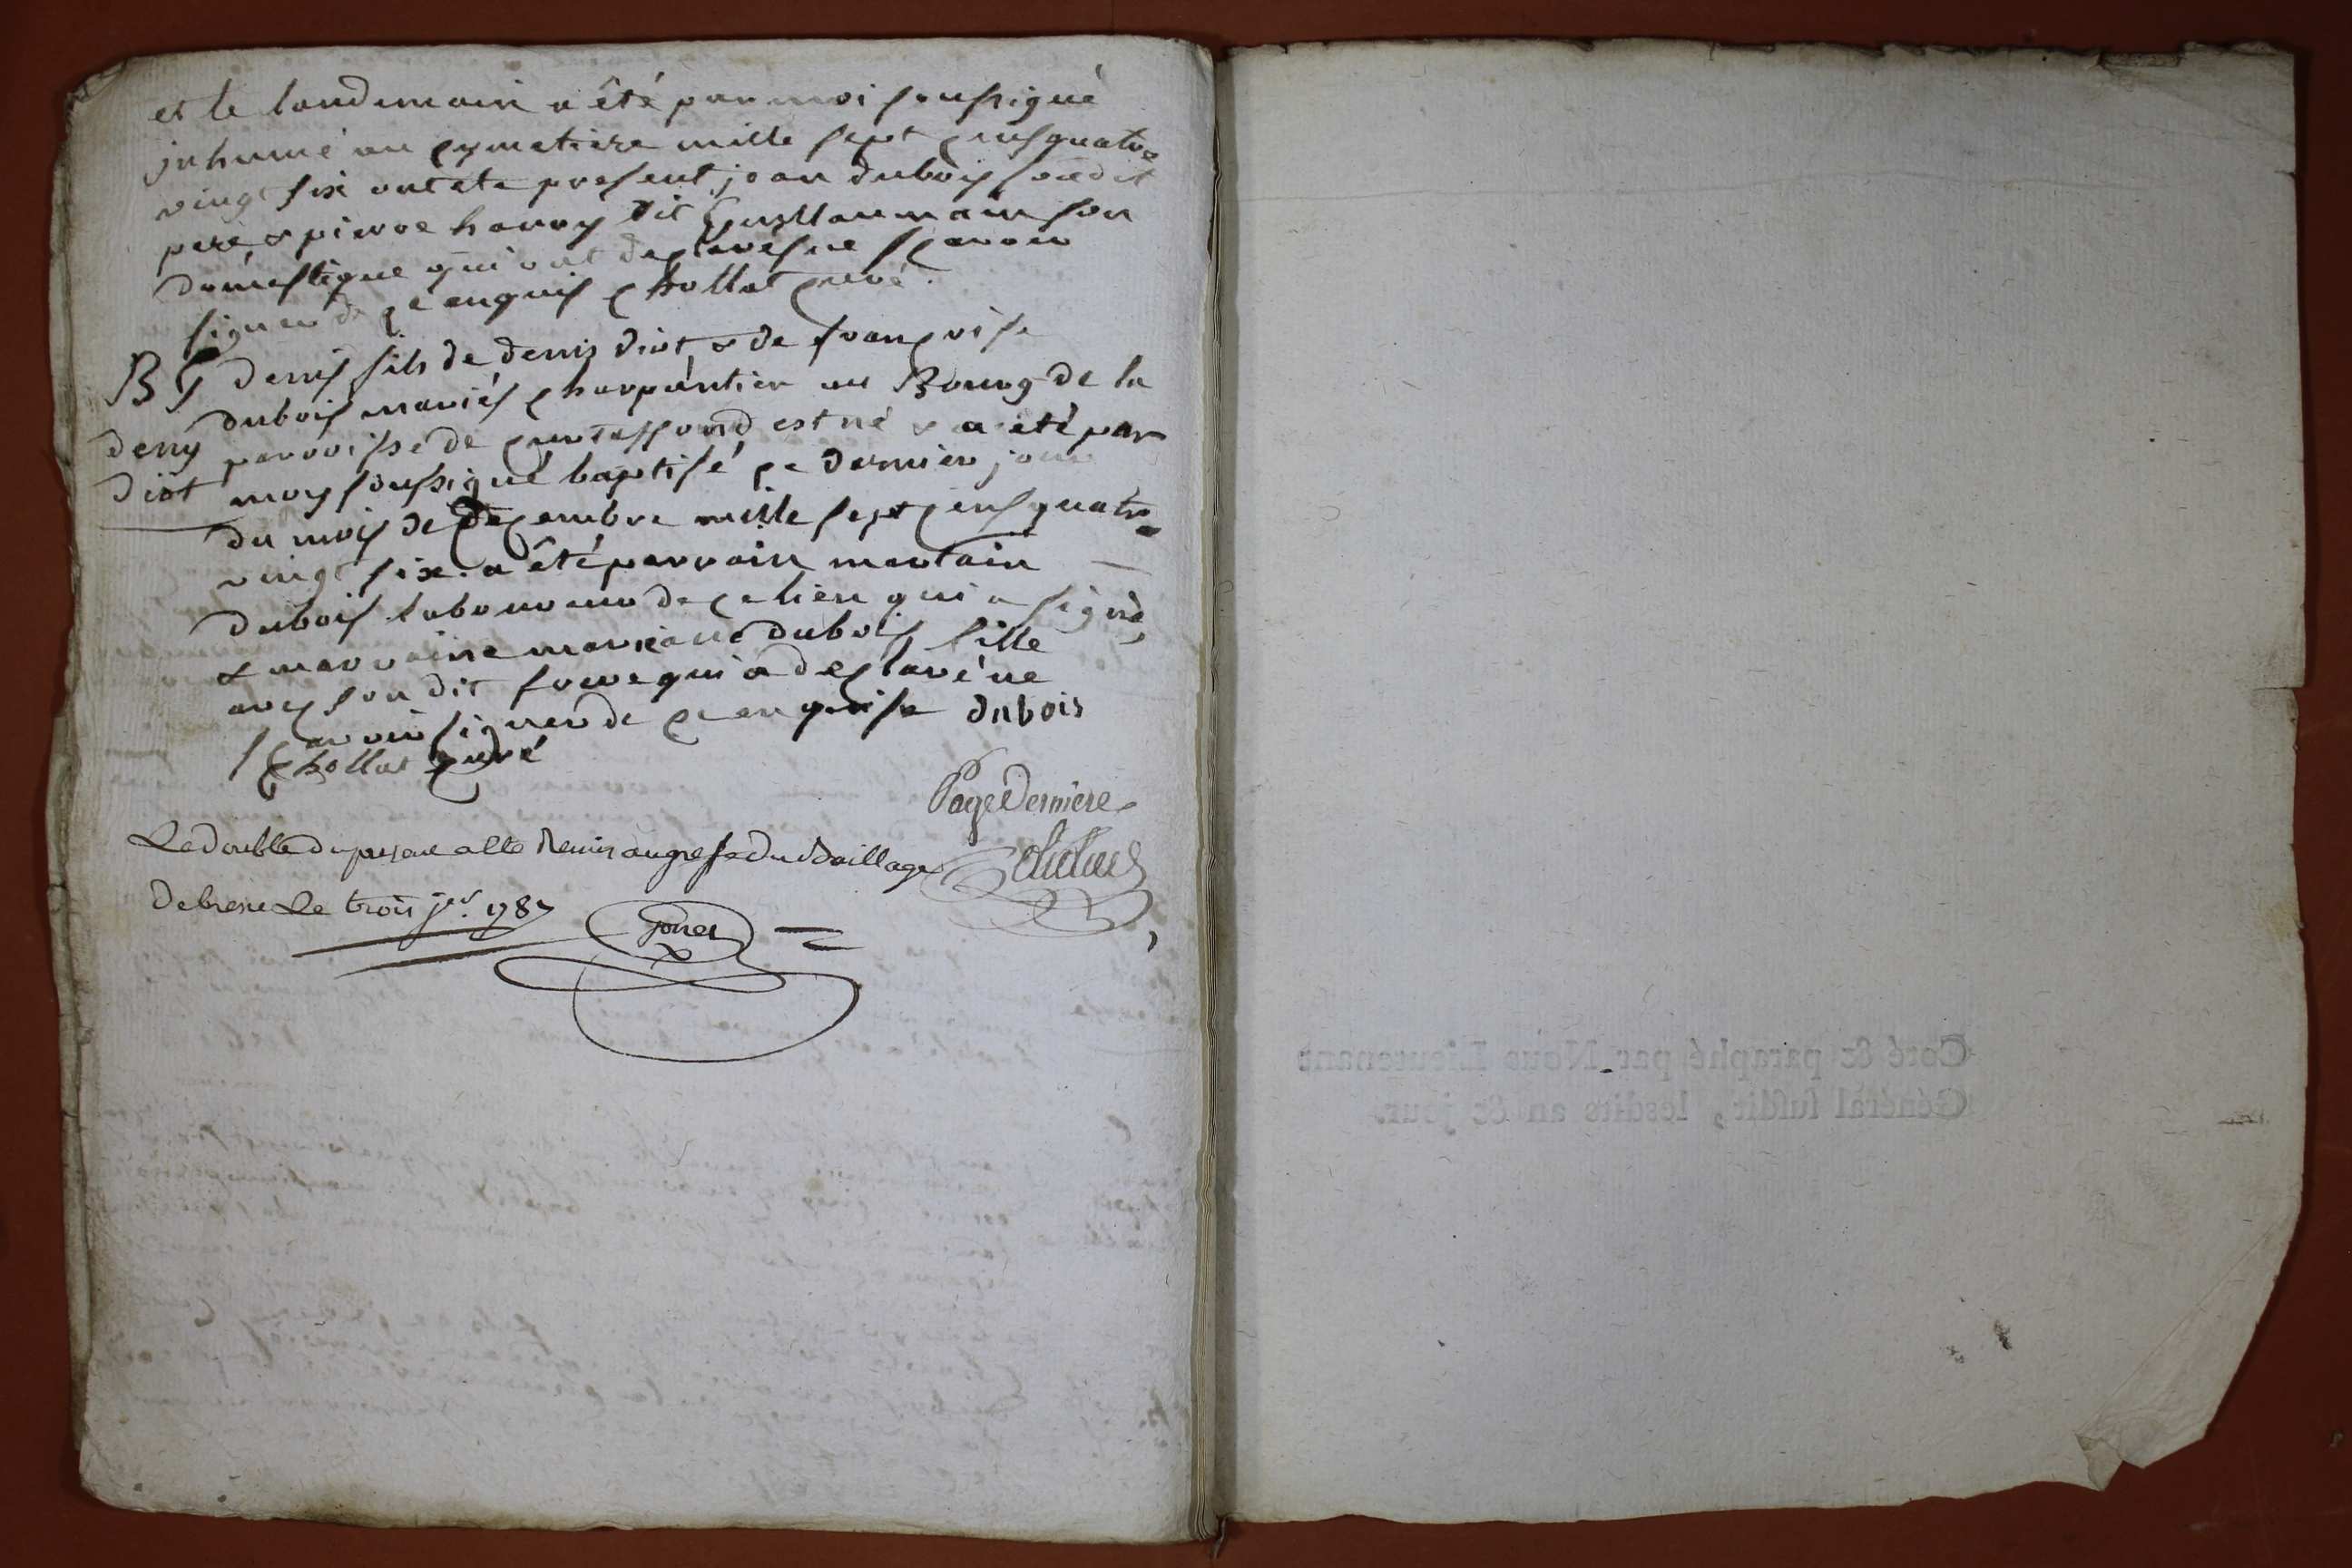 et le landemain a été par moi soussigné
inhumé au cymetiere mille sept cens quatre
vingt six ont ete presents jean dubois son dit
pere & pierre havoy dit Guyllaumain son
domestique qui ont declares ne scavoir
signer de ce enquis chollat curé
BT denis fils de denis diot & de françoise
dubois mariés charpantier au Bourg de la
deny parroisse de curtaffond est né & a été par
diot moy soussigné baptisé ce dernier jour
du mois de decembre mille sept cens quatre
vingt six. a été parrain martain
dubois laboureur de ce lieu qui a signé,
& marraine mariane dubois fille
avec son dit frere qui a declaré ne
scavoir signer de ce enquise dubois
chollat curé
Page Derniere
Le double du presant a été Remis au grefe Du Baillage
De bresse Le trois jer. 1787
Coté & paraphé par Nous Lieutenant
Général susdit, lesdits an & jour.